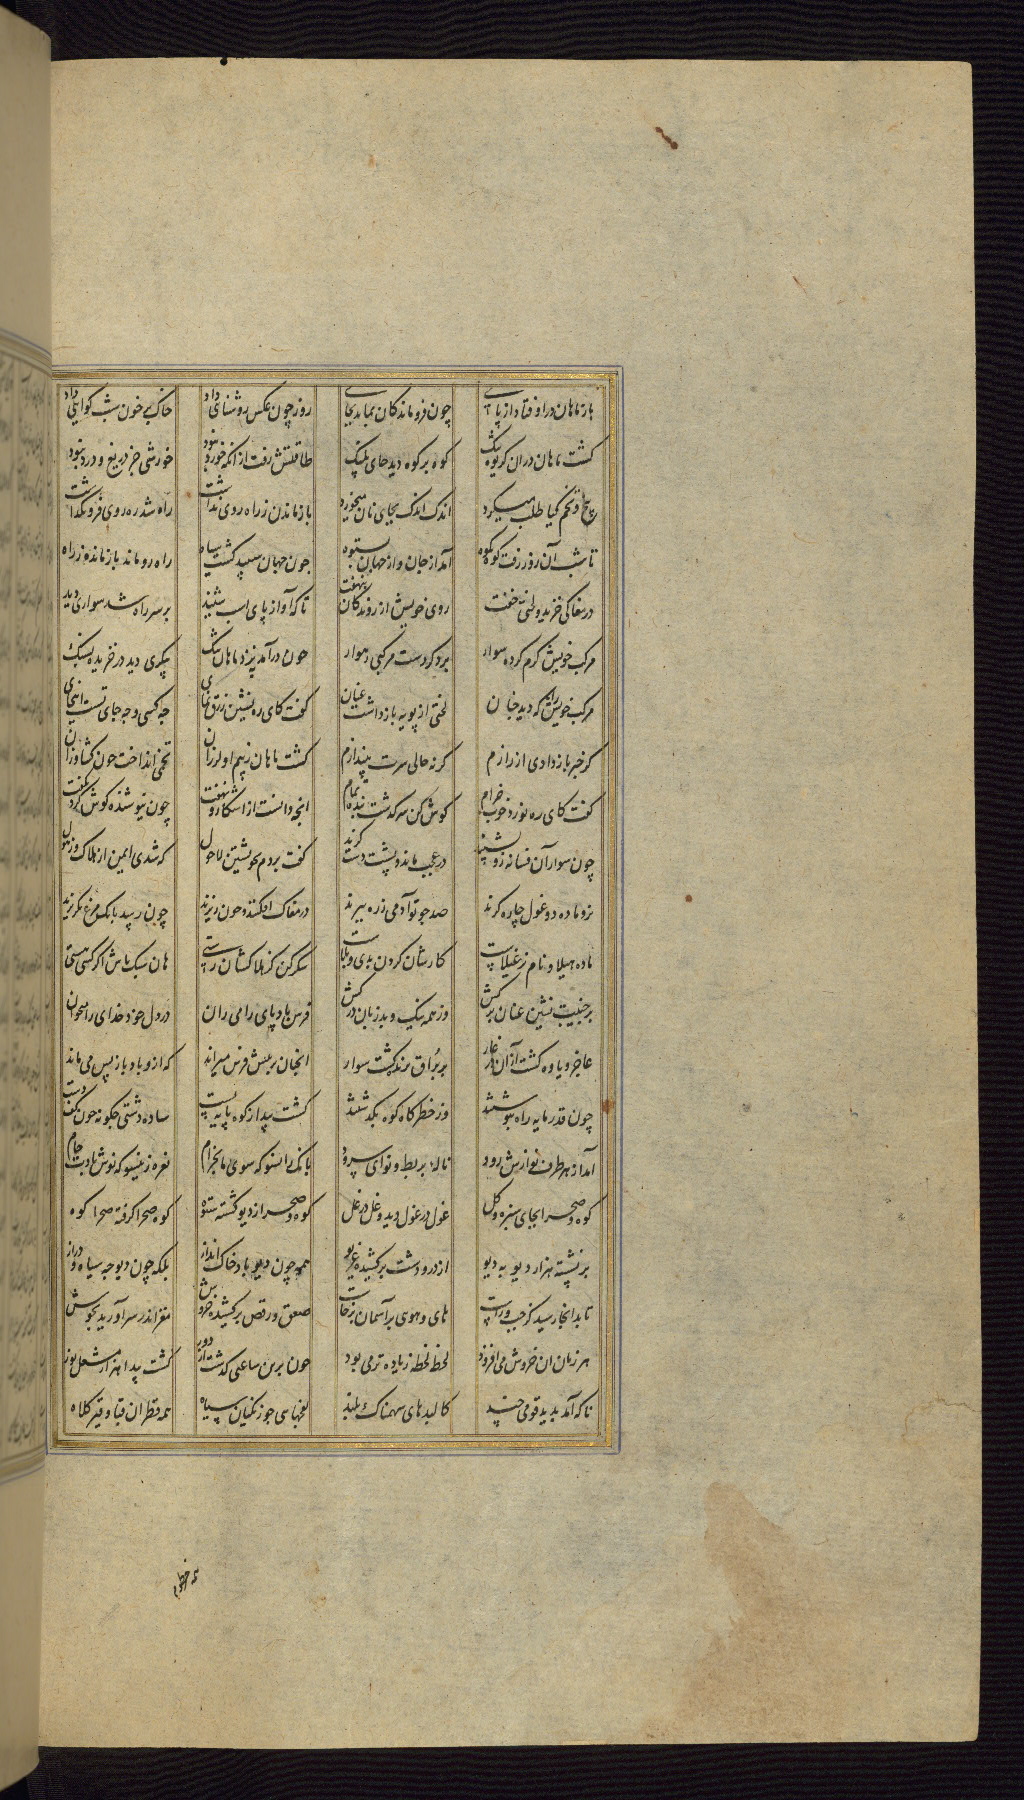 باز ماهان در اوفتاد از پای چون فرو ماندگان بماند بجای روز چون عکس روشنایی داد خاک بر خون شب گوایی داد
گشت ماهان در ان گریوه تنگ کوه بر کوه دید جای پلنگ طاقتش رفت از انکه خورد نبود خورشی جز دریغ و درد نبود
بیخ و تخم گیا طلب میکرد اندک اندک بجای نان میخورد باز ماندن ز راه روی نداشت راه شد ره روی فرو نگذاشت
تا شب آن روز رفت کوه بکوه آمد از جان و از جهان بستوه چون جهان سپید گشت سیاه راه رو ماند باز مانده ز راه
در مغاکی خزید و لختی خفت روی خویش از روندگان بنهفت ناگه آواز پای اسب شنید بر سر راه شد سواری دید
مرکب خویش گرم کرده سوار بردگر دست مرکبی رهوار چون درآمد بنزد ماهان تنگ پیکری دید در خزیده بسنگ
مرکب خویش را که دید چنان لختی از پویه باز داشت عنان گفت کای ره نشین زرق نمای چه کسی و چه جای تست اینجای
گر خبر باز دادی از رازم گر نه حالی سرت بیندازم گشت ماهان ز بیم او لرزان تخمی انداخت چون کشاورزان
گفت کای ره نورد خوب خرام گوش کن سرگذشت بنده تمام انچه دانست از اشکار و نهفت چون نیوشنده گوش کرد بگفت
چون سوار آن فسانه زو بشنید در عجب ماند و پشت دست گزید گفت بردم بخویشتن لاحول که شدی ایمن از هلاک دو هول
نر و ماده دو غول چاره گرند صد چو تو آدمی ز ره ببرند در مغاک افکنند و خون ریزند چون رسد بانگ مرغ بگریزند
ماده هیلا و نام نر غیلاست کارشان کردن بدی و بلاست شکر کن کز هلاکشان رستی هان سبک باش اگر کسی هستی
بر جنیبت نشین عنان برکش وز همه نیک و بد زبان درکش فرس بادپای را می ران در دل خود خدای را میخوان
عاجز و یاوه گشته از آن در غار بر براق پرنده گشت سوار انچنان بر پیش فرس میراند که ازو باد باز پس می ماند
چون قدر مایه راه بنوشتند وز خطرگاه کوه بگذشتند گشت پیدا ز کوه پایه پست ساده دشتی چگونه چون کف دست
آمد از هر طرف نوازش رود نالهٔ بربط و نوای سرود بانگ از انسو که سوی ما بخرام نعره زینسو که نوش بادت جام
کوه و صحرا بجای سبزه و گل غول در غول دید و غل در غل کوه و صحرا ز دیو گشته ستوه کوه صحرا گرفته صحرا کوه
بر نشسته هزار دیو به دیو از در و دشت برکشیده غریو همه چون دیو باد خاک انداز بلکه چون دیوچه سیاه و دراز
تا بدانجا رسید کز چپ و راست های و هوی بر آسمان برخاست صفق و رقص برکشیده خروش مغز را در سر آورید بجوش
هر زمان ان خروش می افزود لحظه لحظه زیاده تر می بود چون برین ساعتی گذشت از دور گشت پیدا هزار مشعل نور
ناگه آمد پدید قومی چند کالبدهای سهمناک و بلند لفچهای چو زنگیان سیاه همه قطران قبا و قیر کلاه